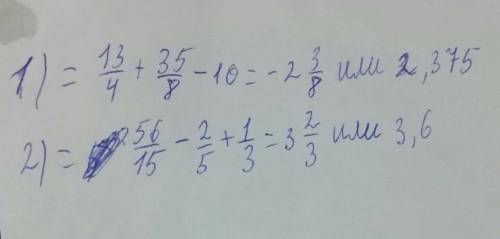 1) = 13/4 + 35/8 - 10 = -2 3/8 или 2,375
2) = 56/15 - 2/5 + 1/3 = 3 2/3 или 3,6